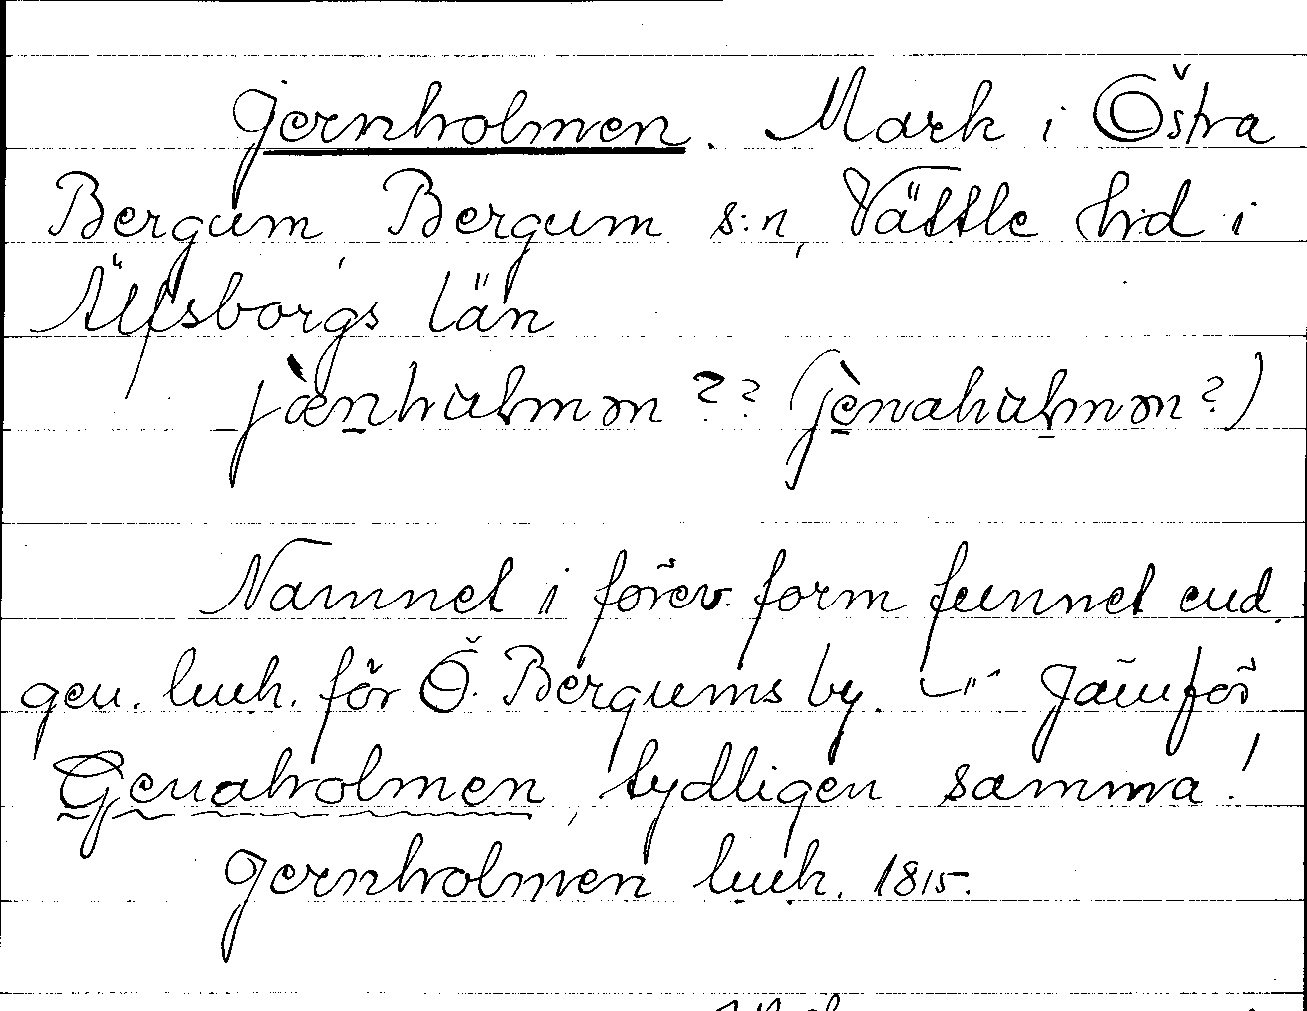 Jernholmen. Mark i Östra
Bergum, Bergum s:n, Vättle hd i
Älfsborgs län
jànhulmən ?? (jènahulmən?)
Namnet i förev. form funnet end.
gen. lmh. för Ö. Bergums by. Jämför
Genaholmen, tydligen samma!
Jernholmen lmh. 1815.